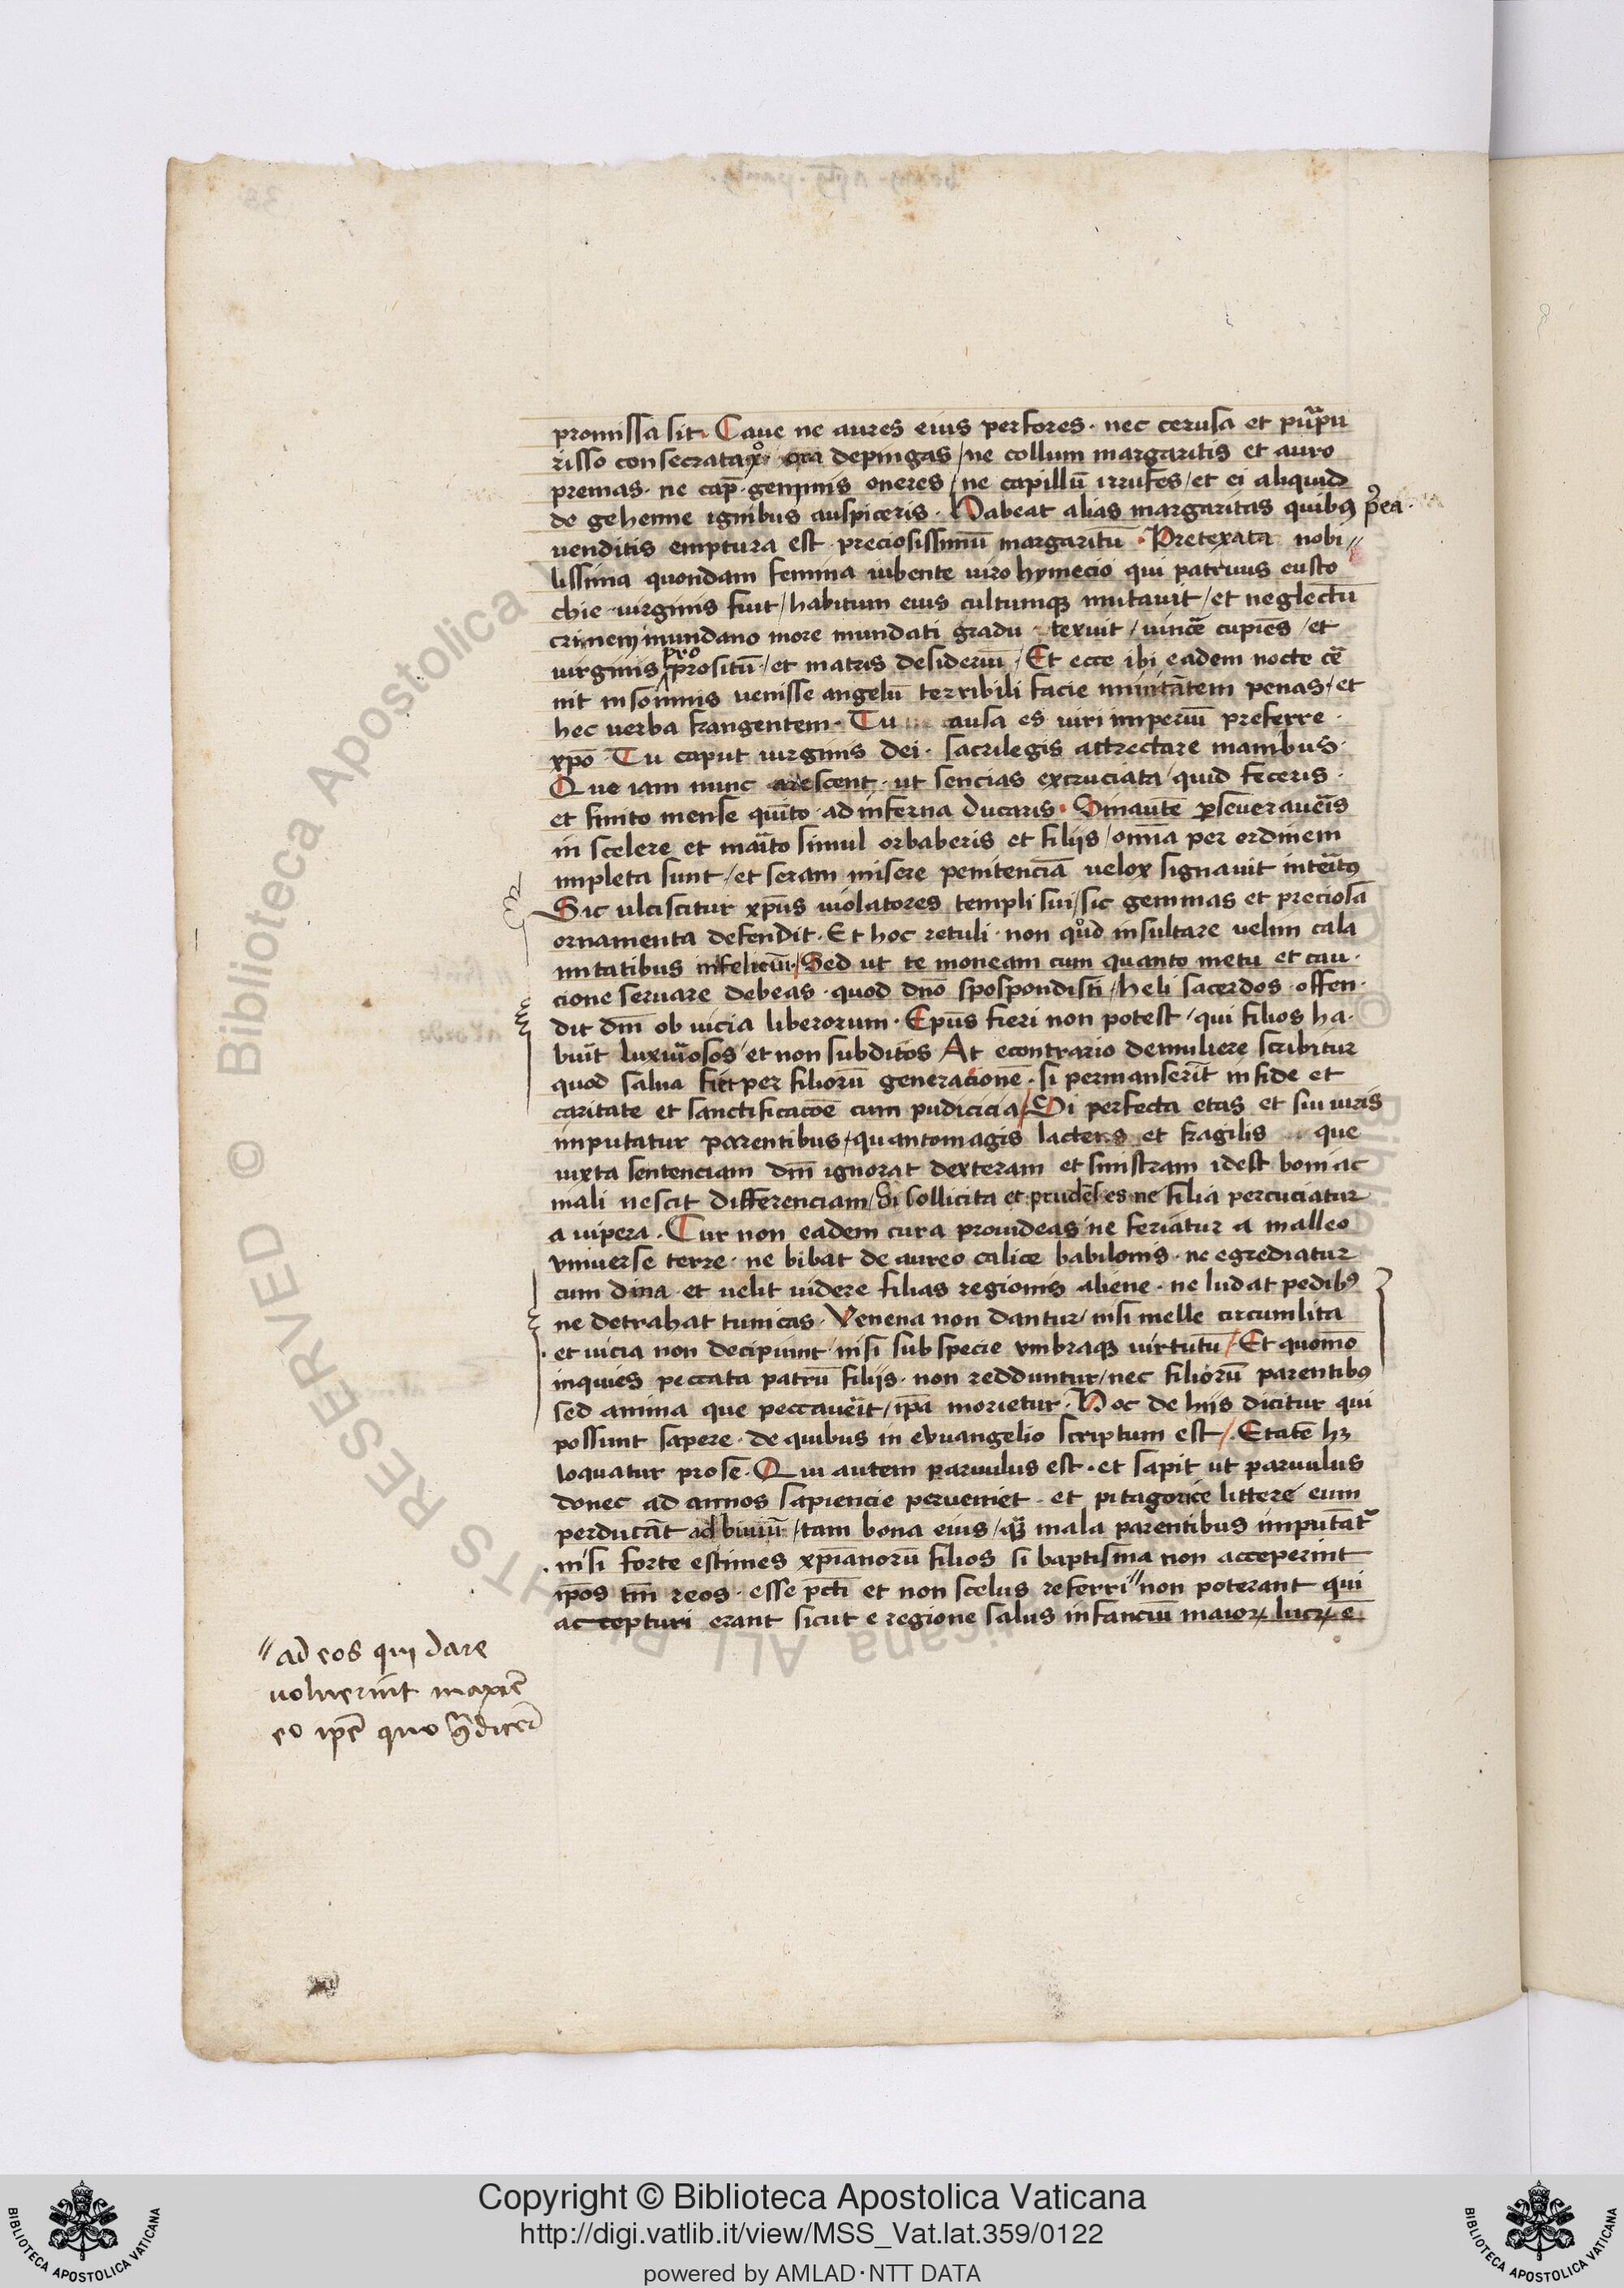 promissa sit. Caue ne aures eius perfores. nec cerusa et purpu
risso consecrata xpo ora depingas / ne collum margaritis et auro
premas. ne cap̄. gemmis oneres / ne capillū irrufes / et ei aliquid
de gehenne ignibus auspiceris. Habeat alias margaritas quibus postea.
uenditis emptura est preciosissimū margaritū. Pretexata nobi〃
lissima quondam femina iubente uiro hymecio qui patruus eusto
chie uirginis fuit / habitum eius cultumque mutauit / et neglectū
crinem mundano more mundati gradu texuit / uincē cupiēs / et
pro
uirginis prositū / et matris desideriū / Et ecce ibi eadem nocte cē
nit insomnis uenisse angelū terribili facie minitātem penas / et
hec uerba frangentem. Tu ausa es uiri imperiū preferre.
xpō Tu caput uirginis dei. sacrilegis attrectare manibus.
Que iam nunc arescent. ut sencias excruciata / quid feceris.
et finito mense quīto ad inferna ducaris. Sin autē perseueraueris
in scelere et marito simul orbaberis et filijs / omīa per ordinem
impleta sunt / et seram misere penitenciā uelox signauit interitus
Sic ulciscitur xpūs uiolatores templi sui / sic gemmas et preciosā
ornamenta defendit. Et hoc retuli. non quod insultare uelim cala
mitatibus infeliciū. / Sed ut te moneam cum quanto metu et cau.
cione seruare debeas. quod dno spospondisti / heli sacerdos offen.
dit dm̄ ob uicia liberorum. Epūs fieri non potest / qui filios ha.
buīt luxuriosos / et non subditos At econtrario de muliere scribitur
quod salua fiet per filiorū generacionē. si permanserīt in fide et
caritate et sanctificacōe cum pudicicia / Si perfecta etas et sui iuris
imputatur parentibus / quantomagis lactens et fragilis que
iuxta sentenciam dm̄ ignorat dexteram et sinistram idest boni ac
mali nescit differenciam / Si sollicita et prudēs es ne filia percuciatur
a uipera. Cur non eadem cura prouideas ne feriatur a malleo
vniuerse terre. ne bibat de aureo calice babilonis. ne egrediatur
cum dina et uelit uidere filias regionis aliene. ne ludat pedibus
ne detrahat tunicas. Venena non dantur / nisi melle circumlita
et uicia non decipiunt nisi sub specie vmbraque uirtutū / Et quomō
inquies peccata patrū filijs. non redduntur / nec filiorū parentibus
sed anima que peccauerit / ipā morietur. Hoc de hijs dicitur qui
possunt sapere. de quibus in evuangelio scriptum est / Etatē hȝ
loquatur pro se. Qui autem paruulus est. et sapit ut paruulus
donec ad annos sapiencie perueniet. et pitagorice littere eum
perducāt ad biuiū / tam bona eius / quam mala parentibus imputātur
nisi forte estimes xpianorū filios si baptisma non acceperint
ipos tm̄ reos. esse pcti et non scelus referri 〃 non poterant qui
accepturi erant sicut e regione salus infanciū maior lucr ē
〃 ad eos qui dare
uoluerint maxīe
eo ipē quo 9dicer̄